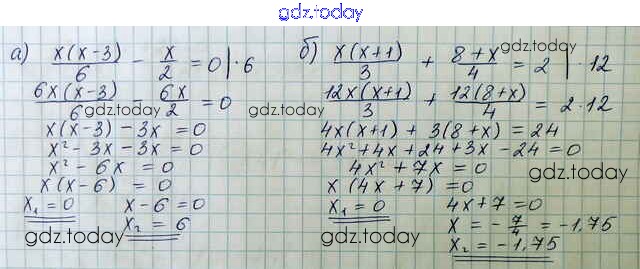 gdz.today
а) x(x-3)/6 - x/2 = 0 | · 6
6x(x-3)/6 - 6x/2 = 0
x(x-3) - 3x = 0
x² - 3x - 3x = 0
x² - 6x = 0
x(x-6) = 0
x₁ = 0 x-6 = 0
x₂ = 6
gdz.today
б) x(x+1)/3 + 8+x/4 = 2 | · 12
12x(x+1)/3 + 12(8+x)/4 = 2·12
4x(x+1) + 3(8+x) = 24
4x² + 4x + 24 + 3x - 24 = 0
4x² + 7x = 0
x(4x+7) = 0
x₁ = 0 4x+7 = 0
x = -7/4 = -1,75
x₂ = -1,75
gdz.today
gdz.today
gdz.today
gdz.today
gdz.today
gdz.today